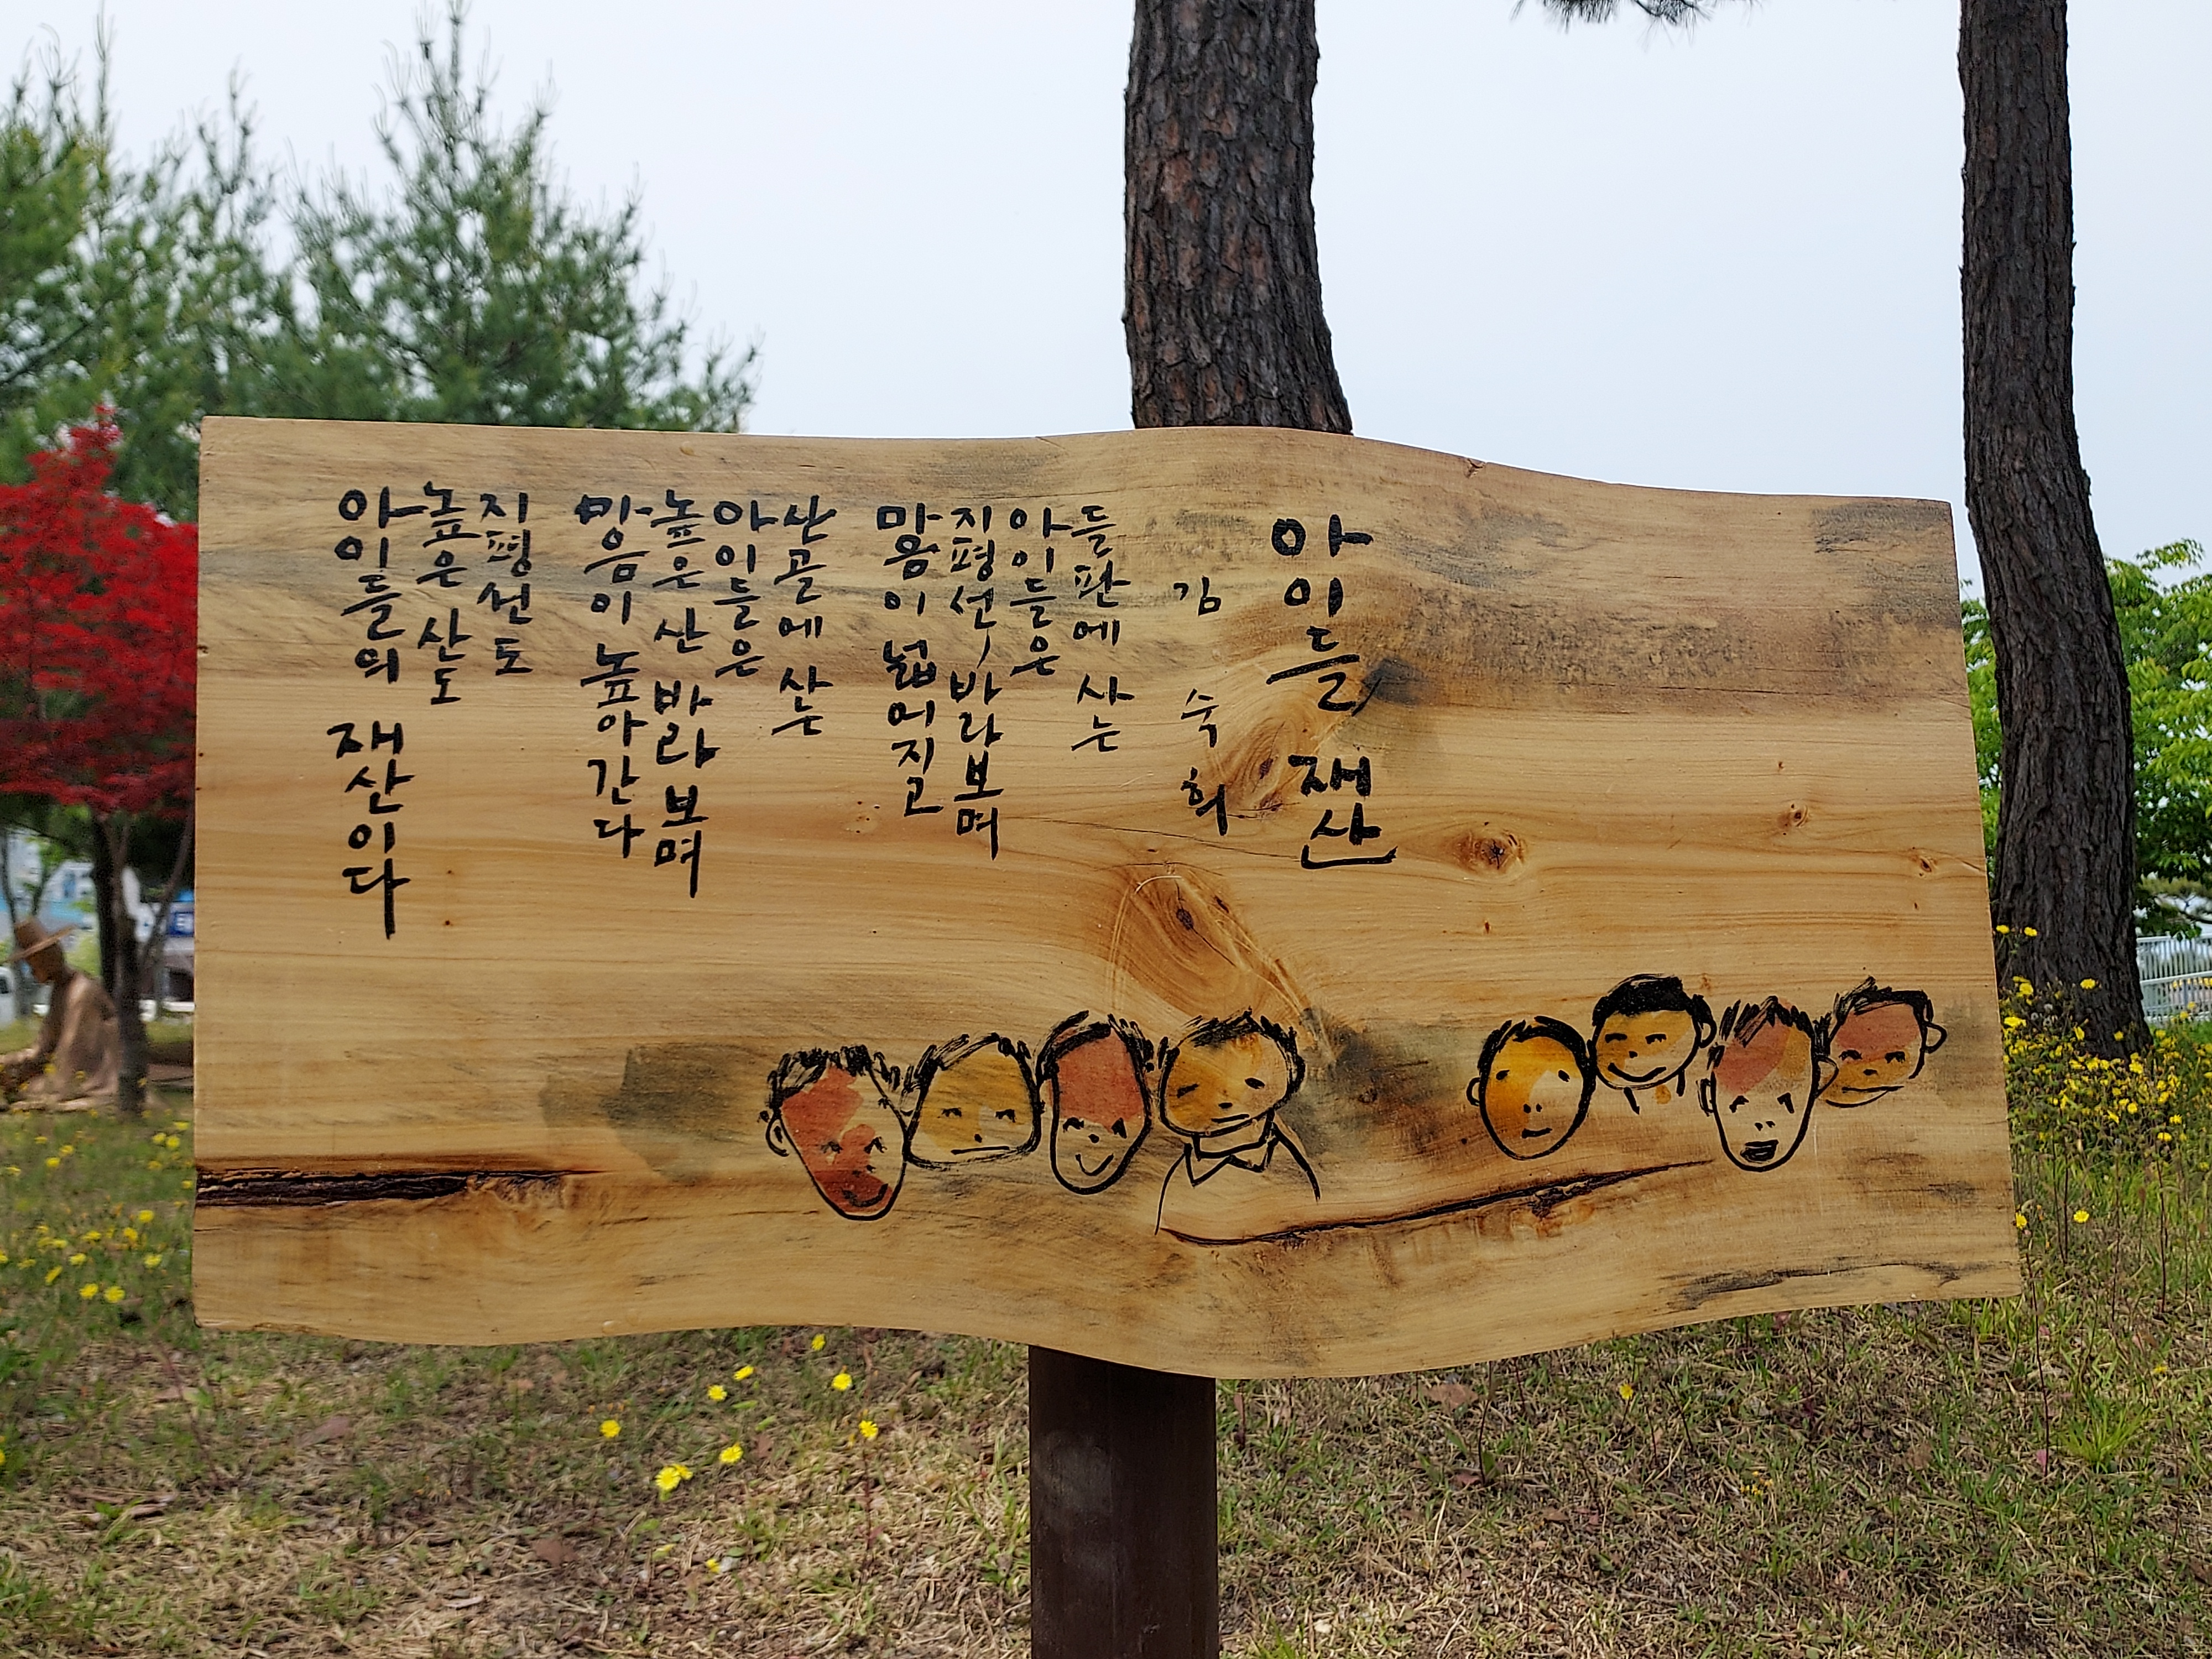 아이들 재산
김숙희
들판에 사는
아이들은
지평선, 바라보며
마음이 넓어지고
산골에 사는
아이들은
높은 산 바라보며
마음이 높아간다
지평선도
높은 산도
아이들의 재산이다